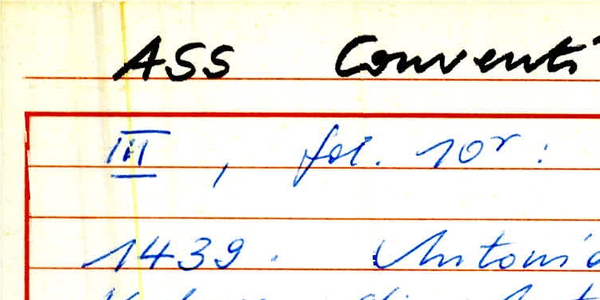 ASS Conventi
III, fol. 10r:
1439. Antoni